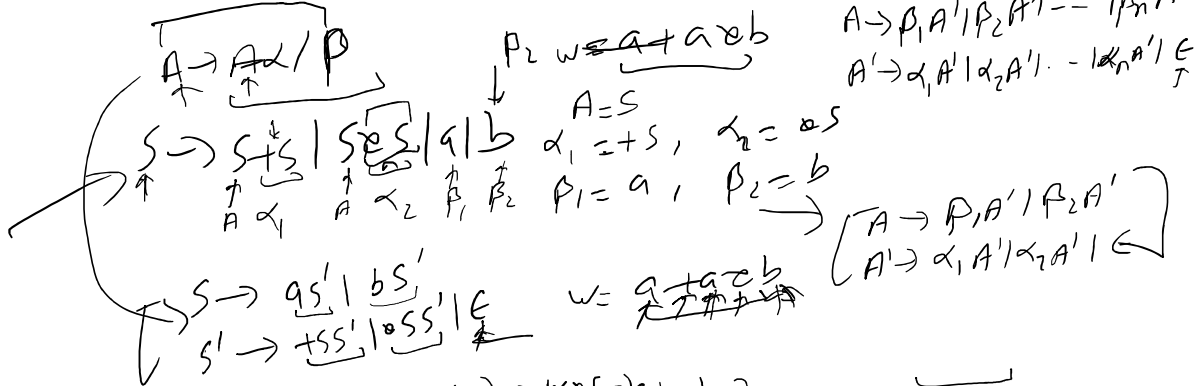 A → Aα / β
w = a + a • b
A → β₁A' | β₂A' | -- | βₙA'
A' → α₁A' | α₂A' | .. - | αₙA' | ∈
β₂
S → S+S | S•S | a | b
A = S
α₁ = +S, α₂ = •S
A α₁ A α₂ β₁ β₂
β₁ = a, β₂ = b
A → β₁A' | β₂A'
A' → α₁A' | α₂A' | ∈
S → aS' | bS'
S' → +SS' | •SS' | ∈
w = a + a • b